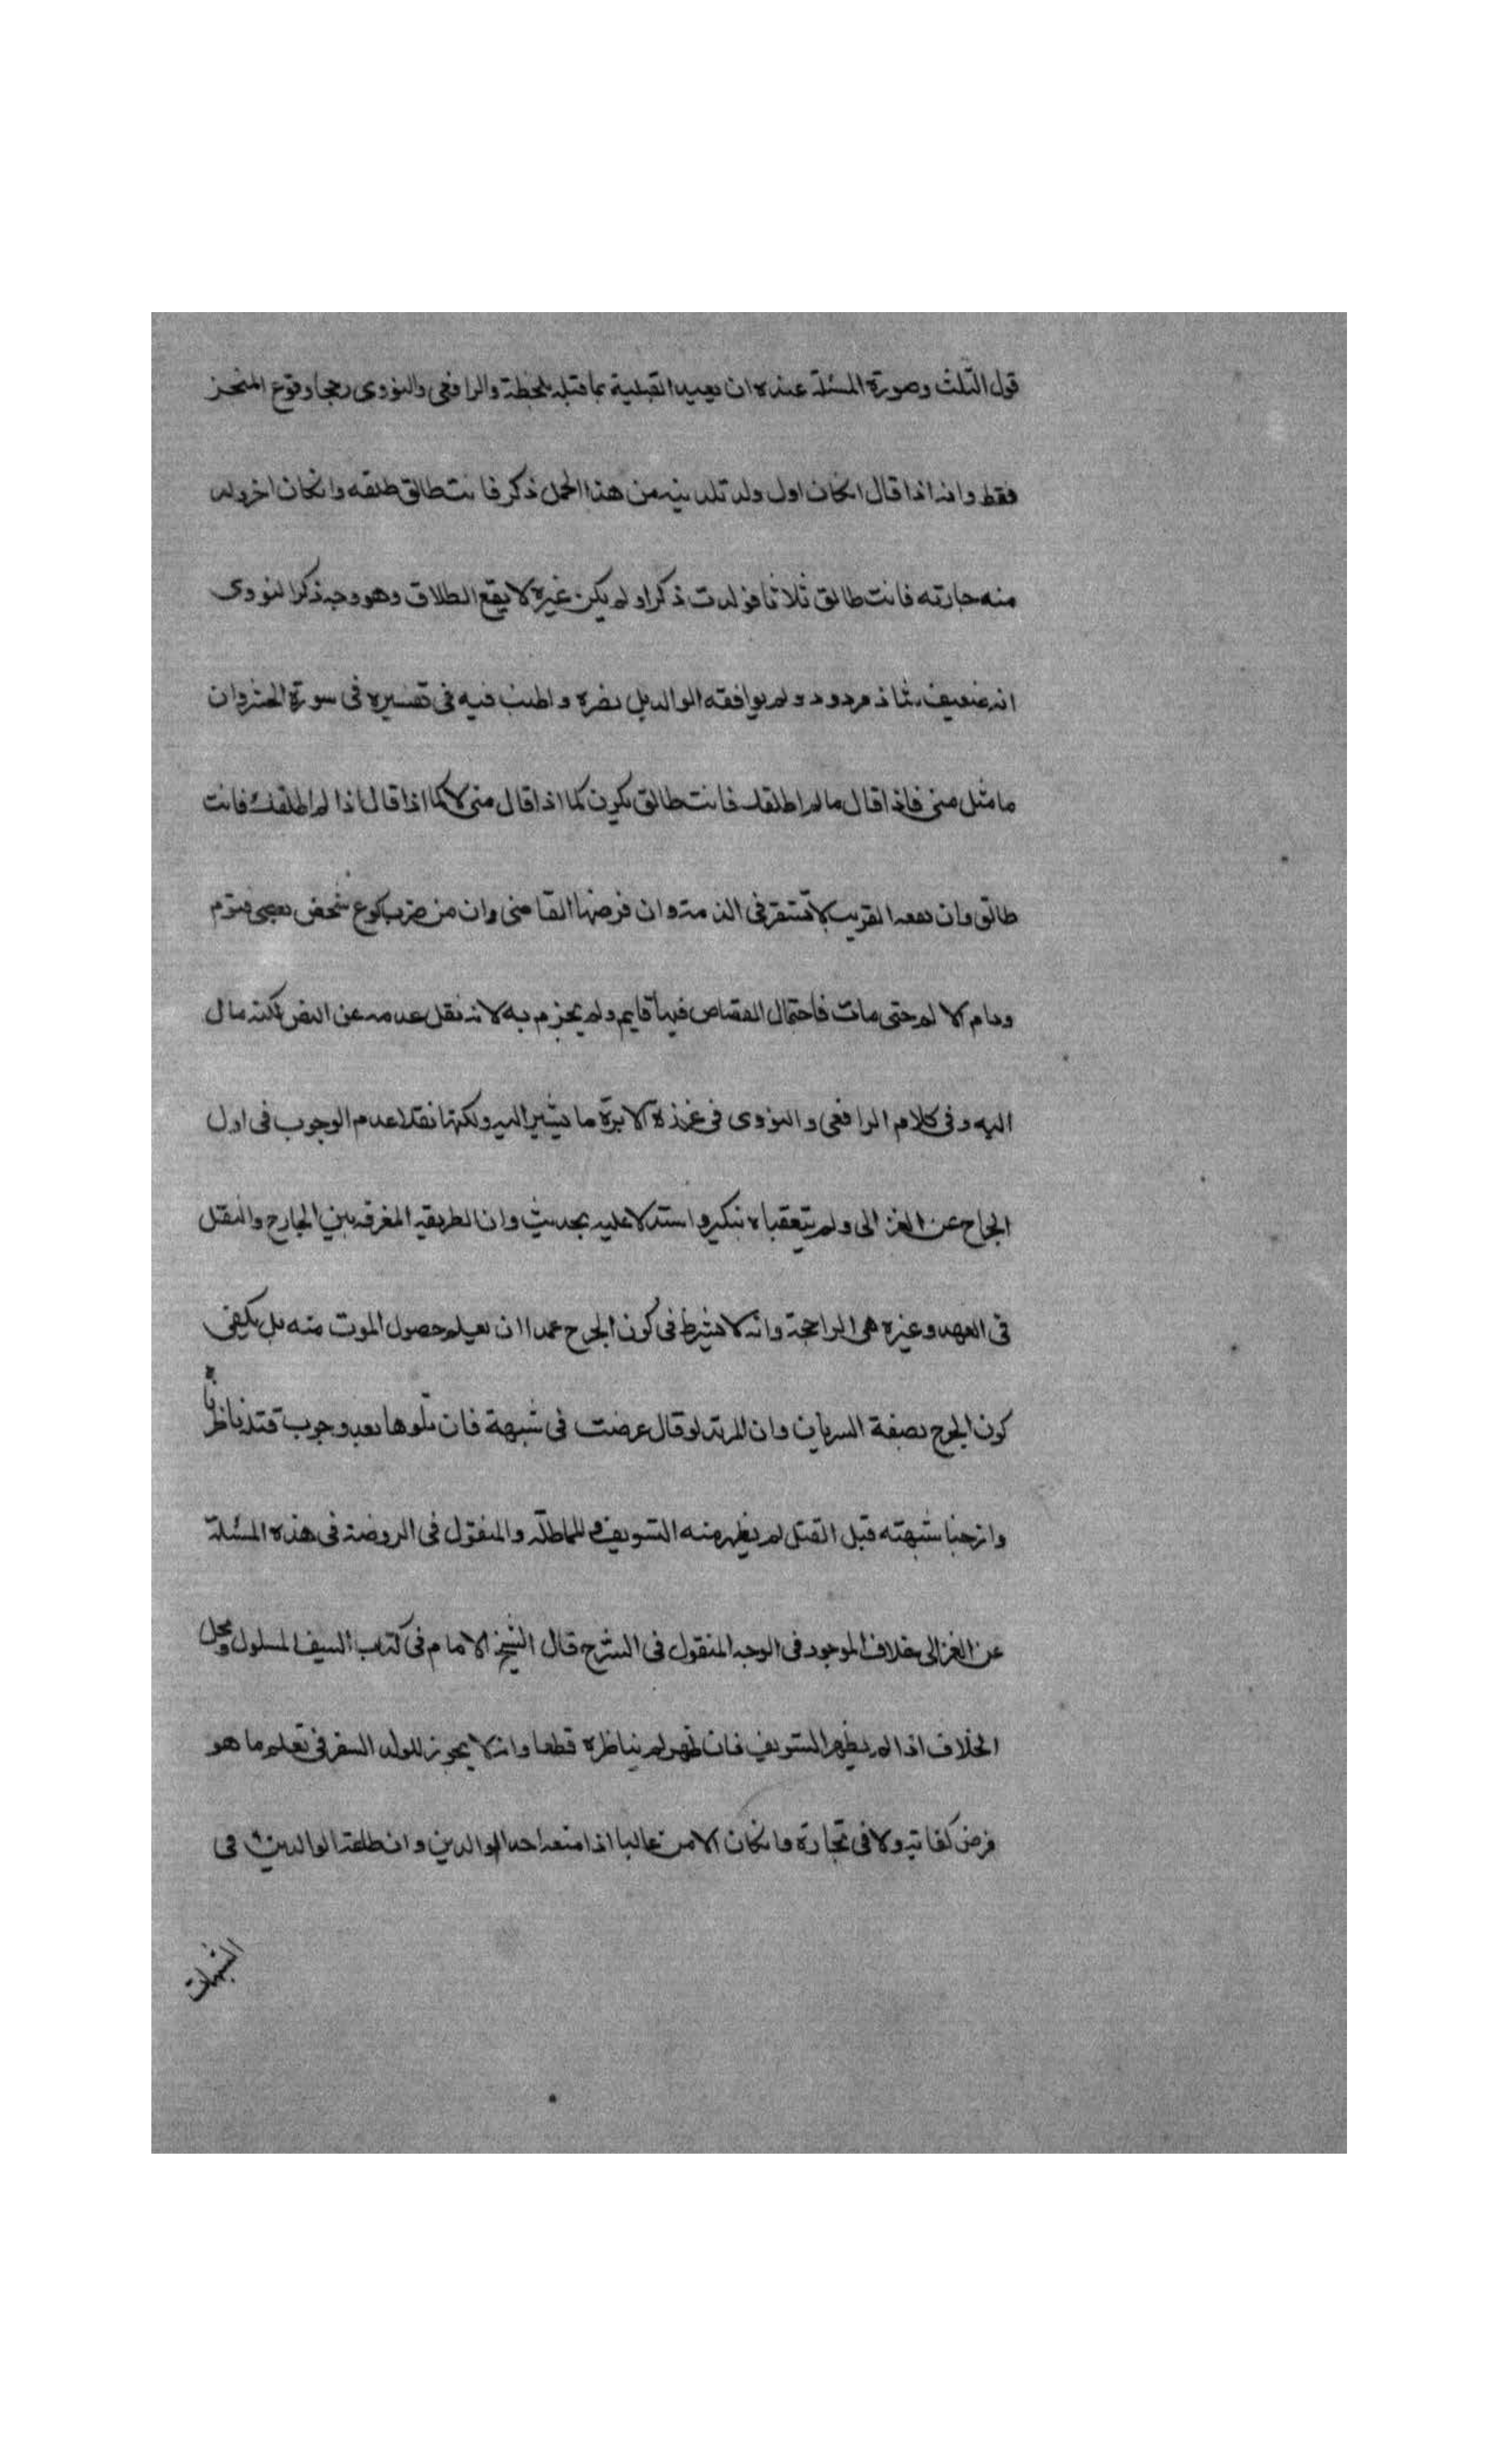 قول الثلث وصورة المسئلة عنده ان يعيد القبلية بما قبله بلحظة والرافعي والنووي رجحا وقوع المنجز
فقط وانه اذا قال انكان اول ولد تلدينه من هذا الحمل ذكر فانت طالق طلقه وانكان اخر ولد
منه جارته فانت طالق ثلاثا فولدت ذكرا ولم يكن غيره لا يقع الطلاق وهو وجه ذكر النووي
انه ضعيف شاذ مردود ولم يوافقه الوالد بل نصره واطنب فيه في تفسيره في سورة الحشر وان
ما مثل متى فاذا قال مالم اطلقك فانت طالق يكون كما اذا قال متى لا كما اذا قال اذا لم اطلقك فانت
طالق وان نفقه القريب لا تستقر في الذمة وان فرضها القاضي وان من ضرب كوع شخص بعصى فتورم
ودام الالم حتى مات فاحتمال القصاص فيها قايم ولم يجزم به لانه نقل عدمه عن النص لكنه مال
اليه وفي كلام الرافعي والنووي في غرزة الابرة ما يشير اليه ولكنها نقلا عدم الوجوب في اول
الجراح عن الغزالي ولم يتعقباه بنكير واستدلا عليه بحديث وان الطريقه المفرقه بين الجارح والثقل
في العهد وغيره هي الراجحة وانه لا يشترط في كون الجرح عمدا ان يعلم حصول الموت منه بل يكفي
كون الجرح بصفة السريان وان المرتد لو قال عرضت في شبهة فان تلوها بعد وجوب قتله ناظرنا
وازحنا شبهته قبل القتل لم يظهر منه التسويف والمماطلة والمنقول في الروضة في هذه المسئلة
عن الغزالي خلاف الموجود في الوجه المنقول في الشرح قال الشيخ الامام في كتاب السيف المسلول ومحل
الخلاف اذا لم يظهر التسويف فان ظهر لم يناظره قطعا وانه لا يجوز للولد السفر في تعلم ما هو
فرض كفاية ولا في تجارة وانكان الامن غالبا اذا منعه احد الوالدين وان طاعة الوالدين في
الشبهات